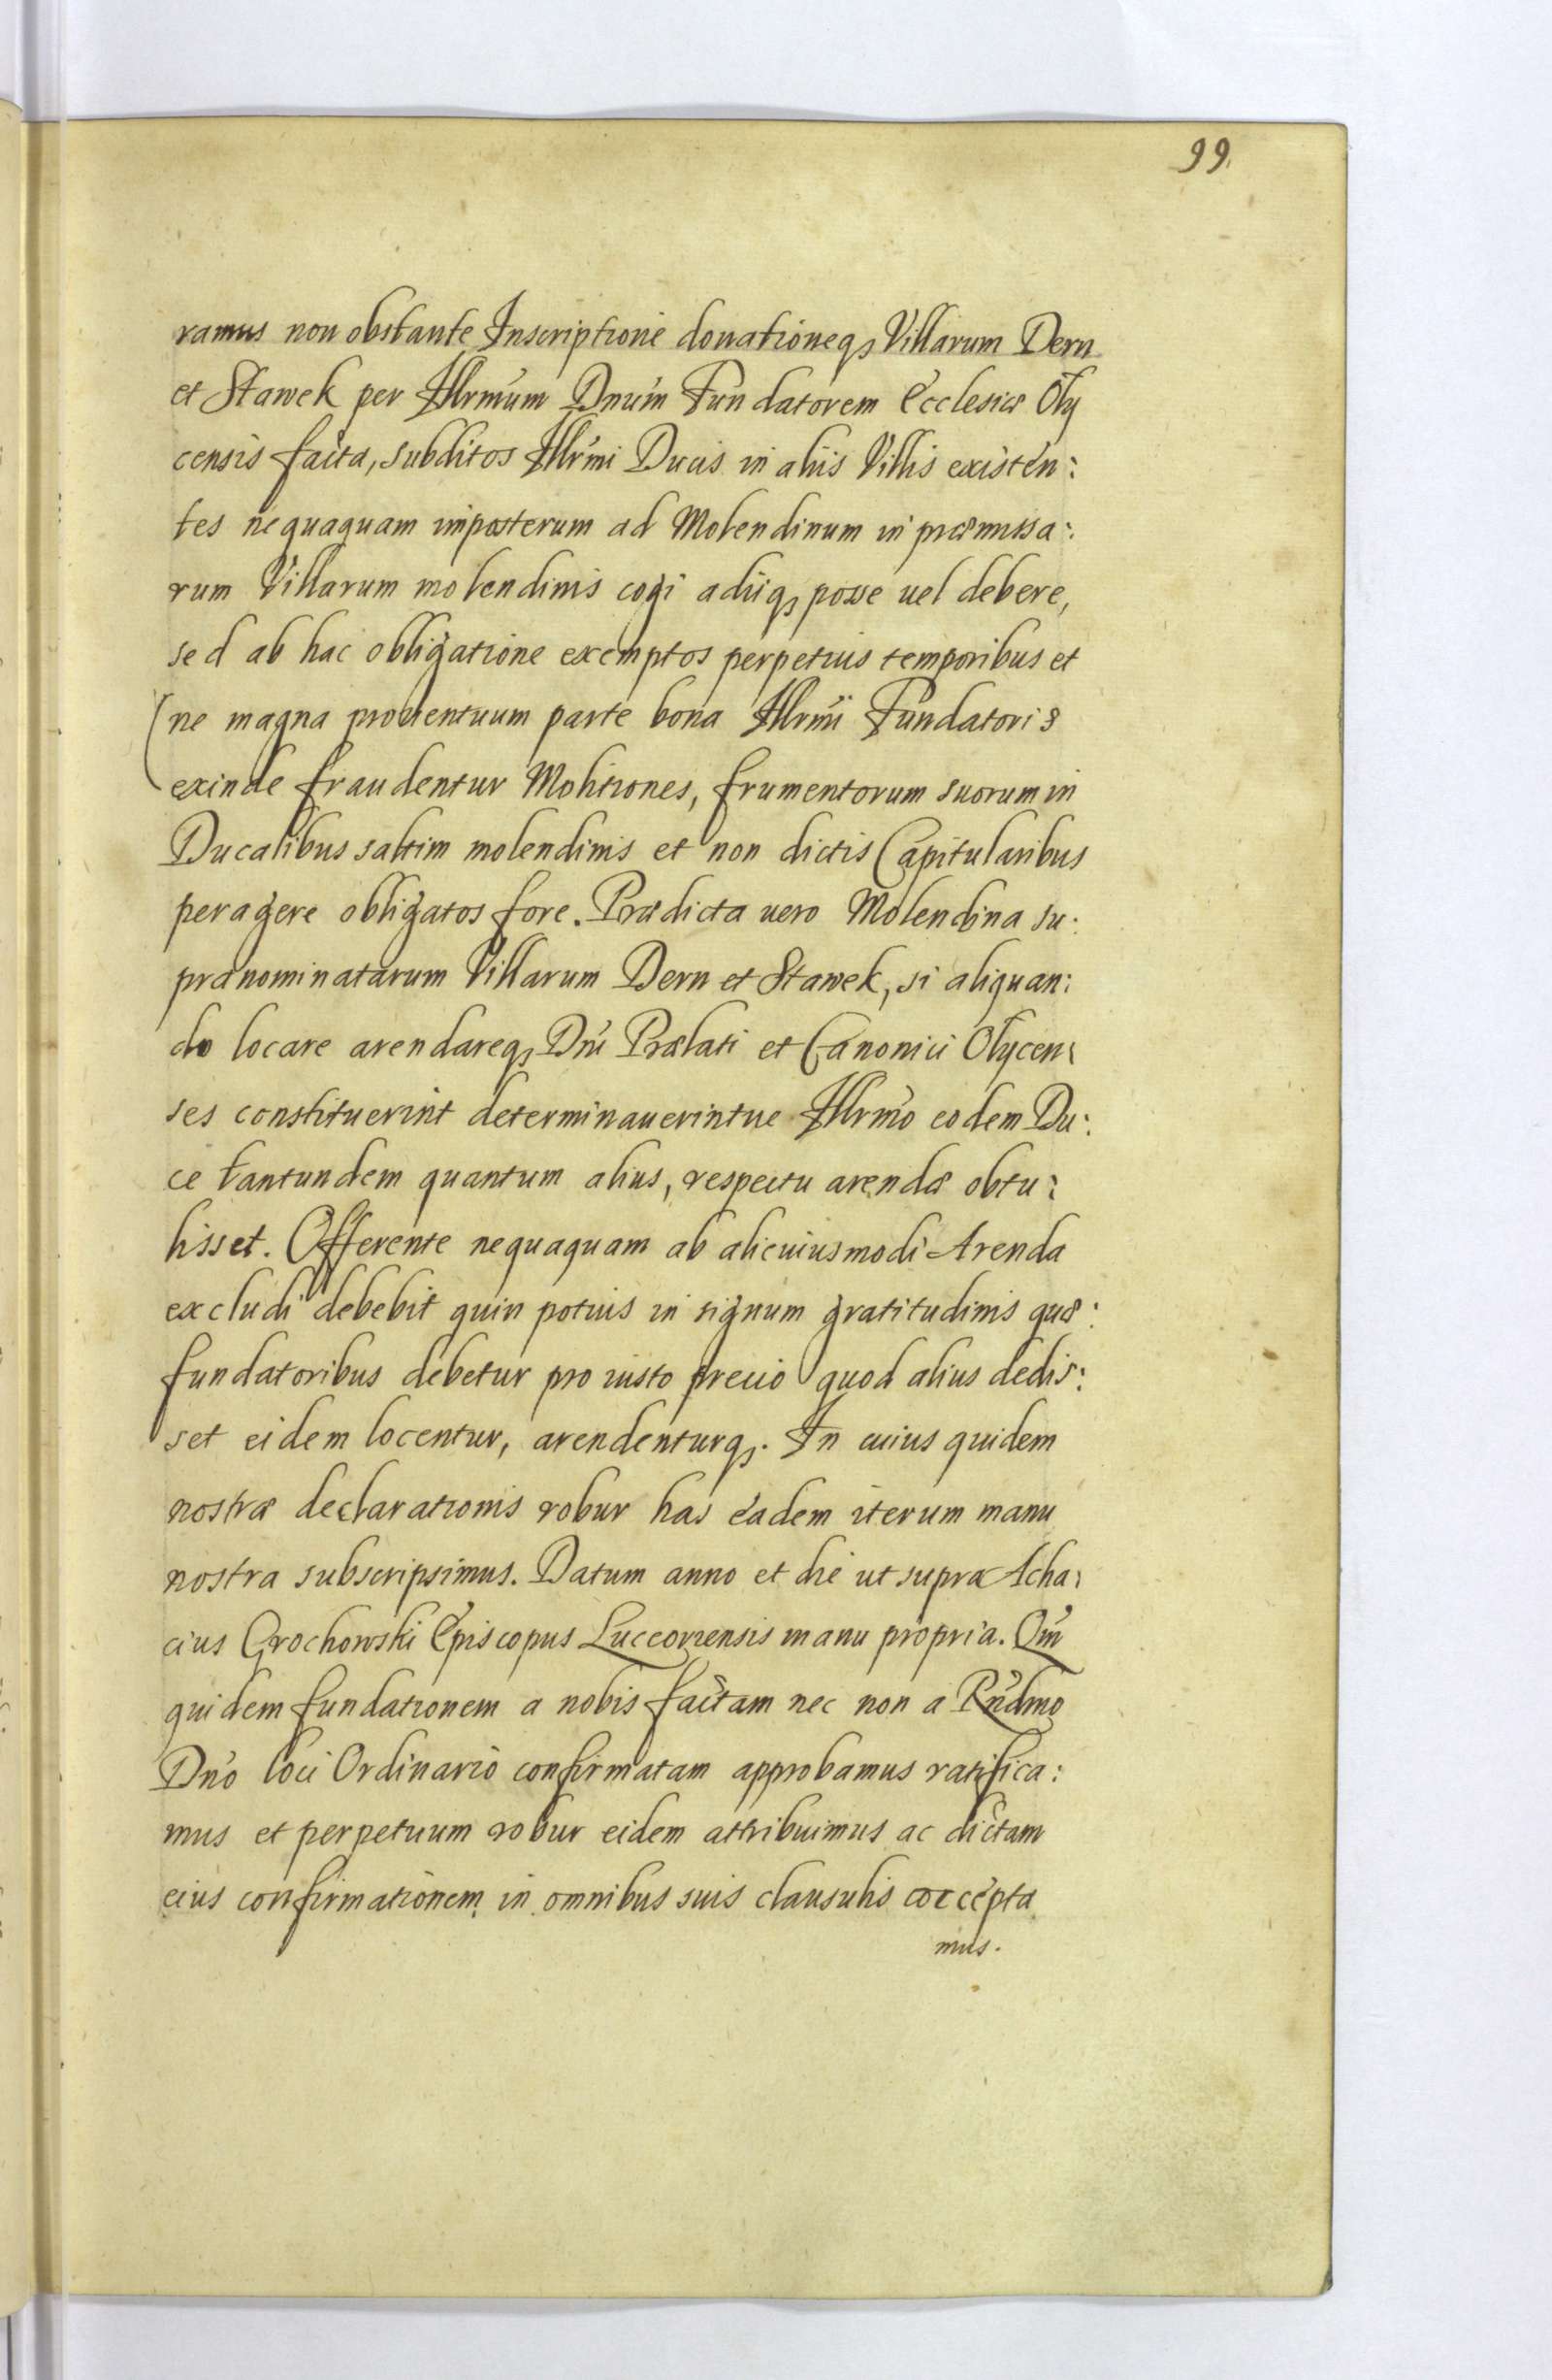 99.
ramus non obstante Inscriptione donationeq₃ Villarum Dern
et Stawek per Illrmum Dnum Fundatorem Ecclesiæ Oly
censis facta, subditos Illrmi Ducis in aliis Villis existen:
tes nequaquam imposterum ad Molendinum in præmissa:
rum Villarum molendinis cogi adiiq₃ posse uel debere,
sed ab hac obligatione exemptos perpetuis temporibus et
(ne magna prouentuum parte bona Illrmi Fundatoris
exinde fraudentur Molitiones, frumentorum suorum in
Ducalibus saltim molendinis et non dictis Capitularibus
peragere obligatos fore. Prædicta uero Molendina su:
pranominatarum Villarum Dern et Stawek, si aliquan:
do locare arendareq₃ Dni Prælati et Canonici Olycen:
ses constituerint determinauerintue Illrmo eodem Du:
ce tantundem quantum alius, respectu arendæ obtu:
lisset. Offerente nequaquam ab alicuiusmodi Arenda
excludi debebit quin potius in signum gratitudinis quæ:
fundatoribus debetur pro iusto precio quod alius dedis:
set eidem locentur, arendenturq₃. In cuius quidem
nostræ declarationis robur has eadem iterum manu
nostra subscripsimus. Datum anno et die ut supra Acha:
cius Grochowski Episcopus Luceoriensis manu propria. Qm
quidem fundationem a nobis factam nec non a Rndmo
Dno loci Ordinario confirmatam approbamus ratifica:
mus et perpetuum robur eidem attribuimus ac dictam
eius confirmationem in omnibus suis clausulis accepta
mus.